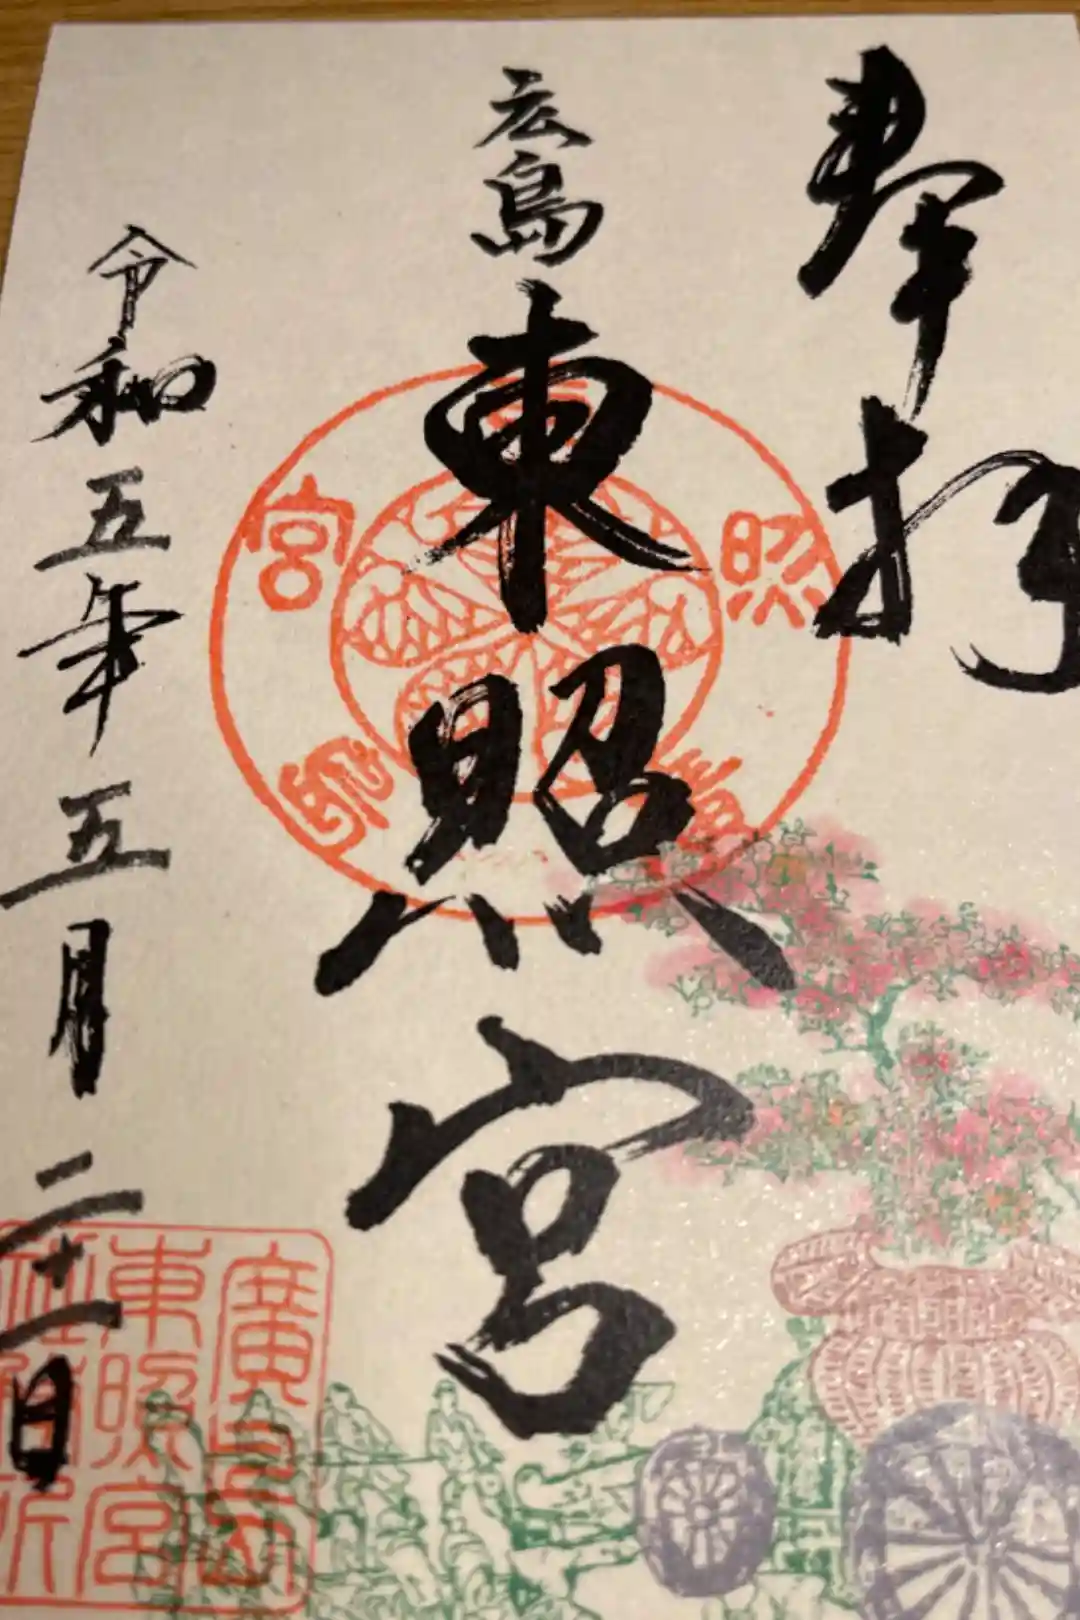 奉拝
広島
東照宮
令和五年五月二十一日
廣島
東照宮